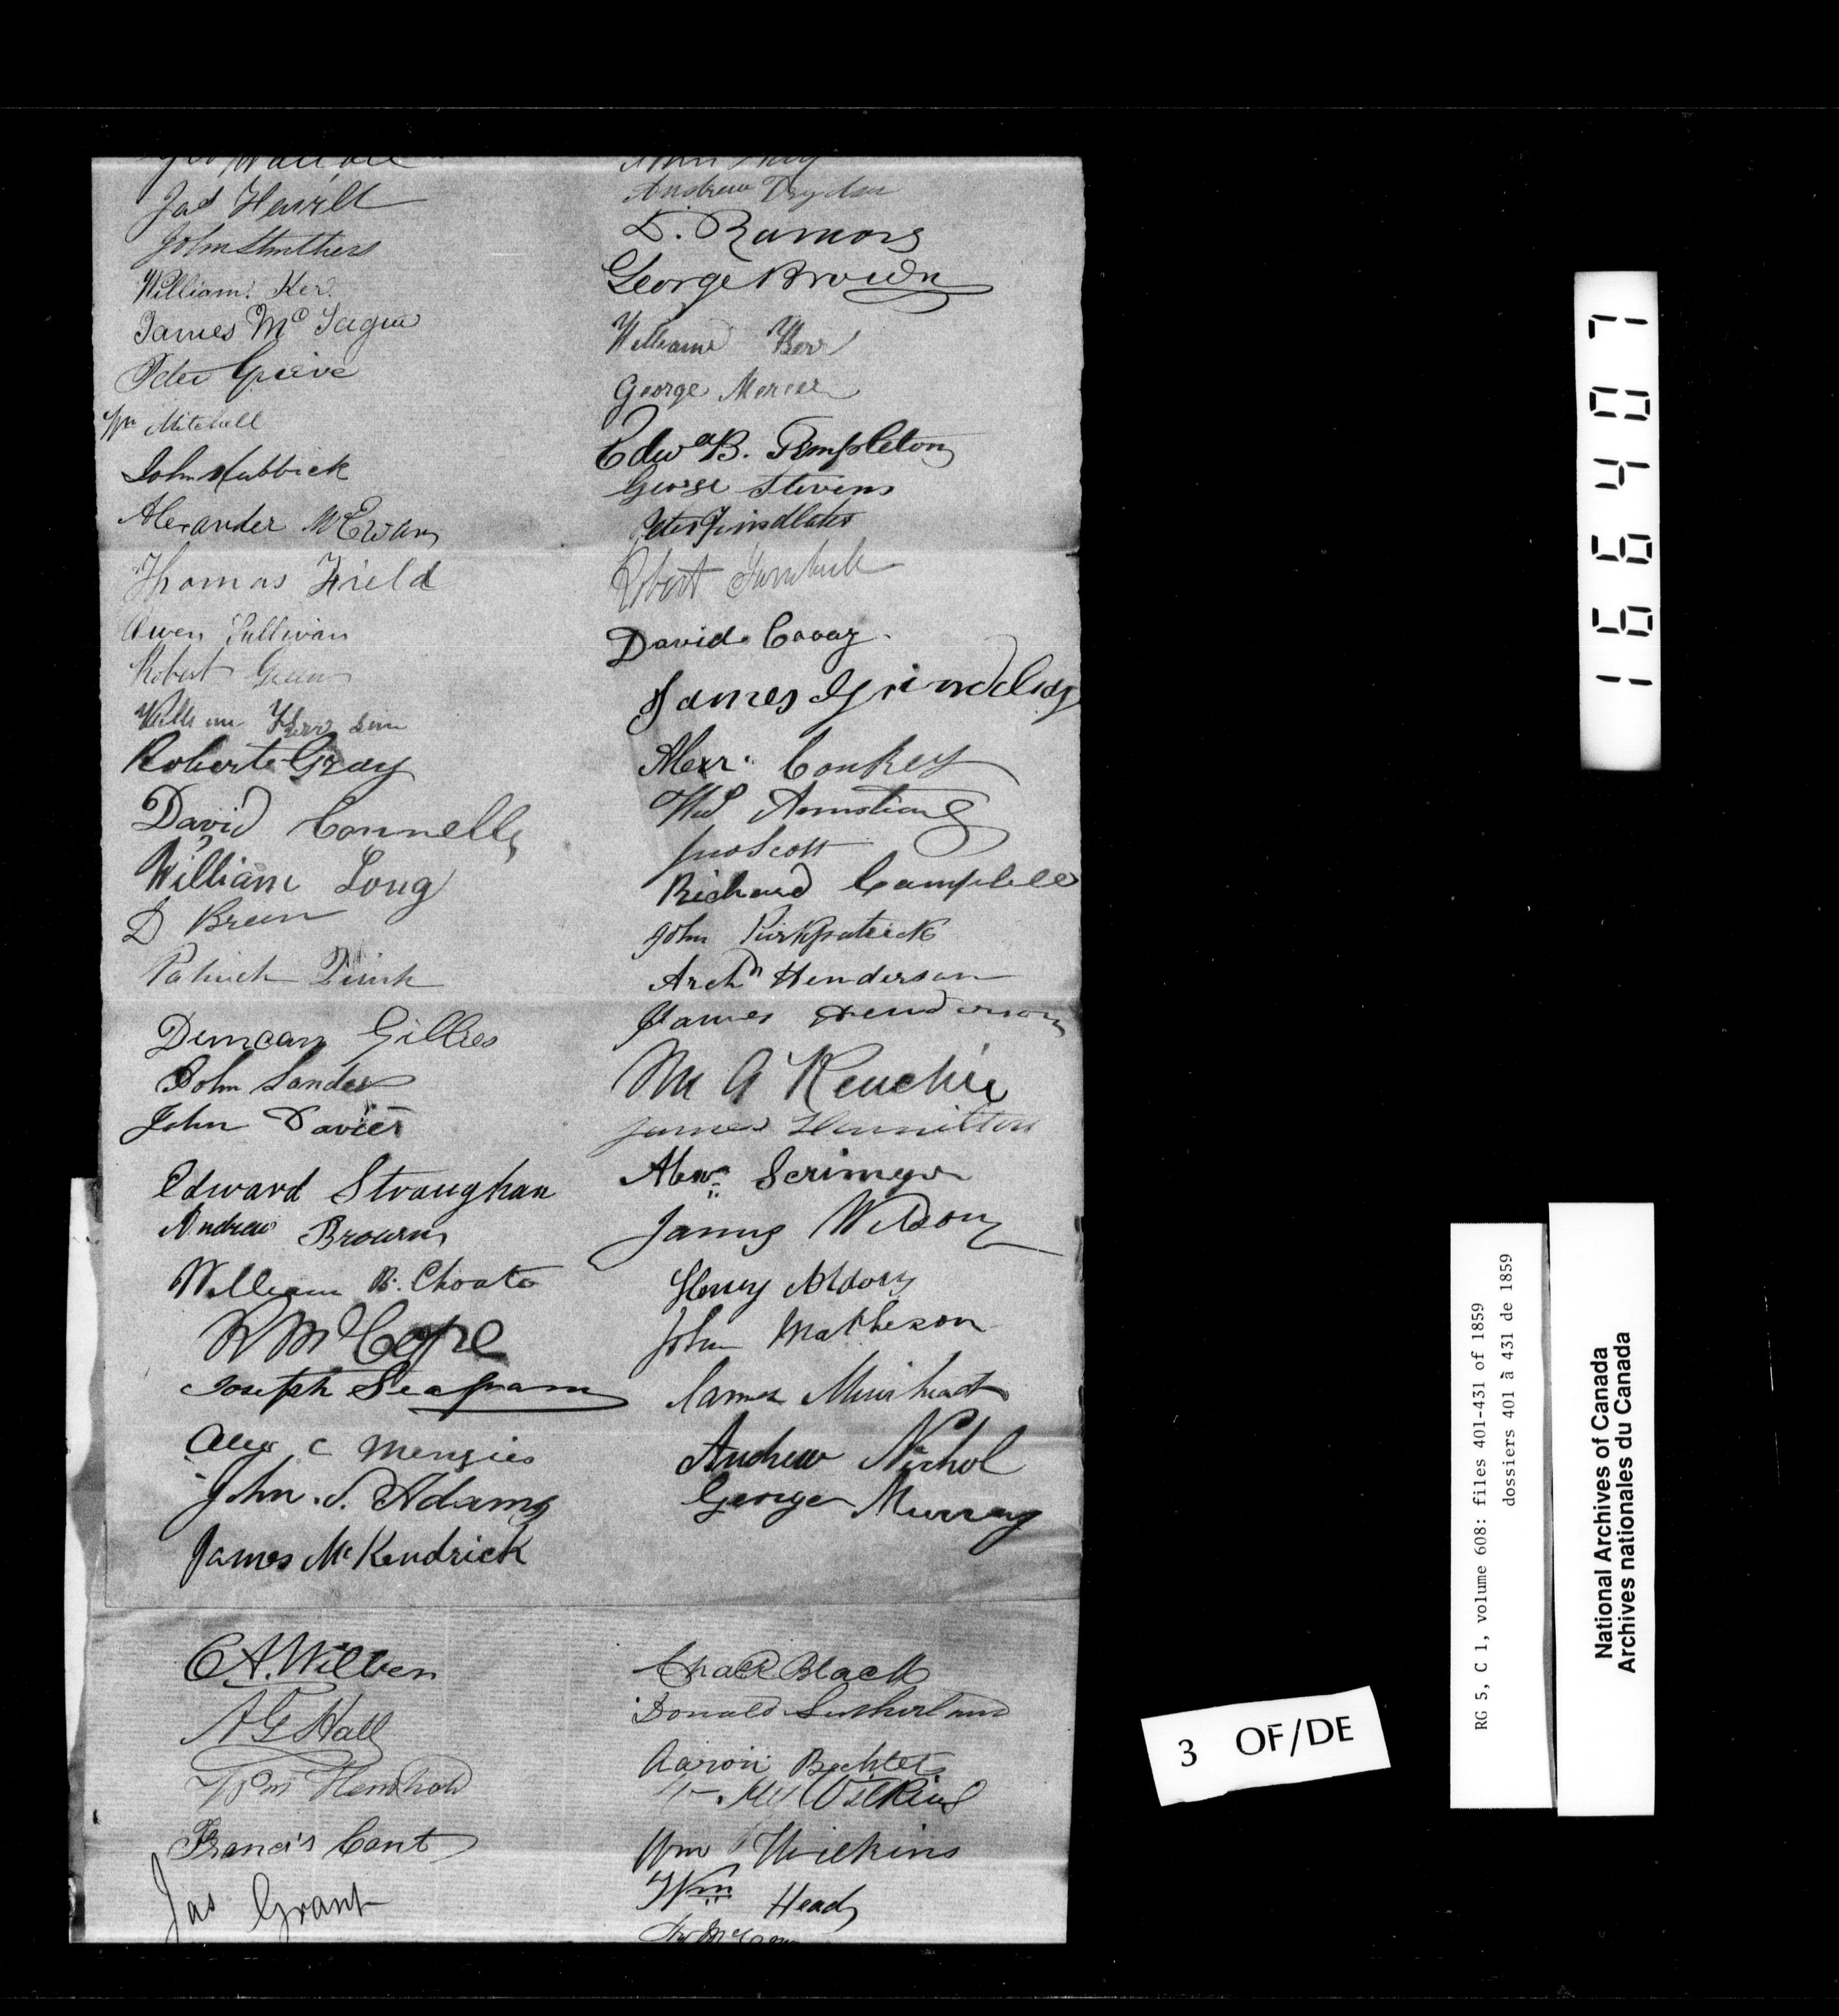 Jas
John Struthers
William Ker.
James McTague
Peter Grieve
Mitchell
John Hubbick
Alexander McEwan
Thomas Field
Owen Sullivan
Robert Green
William Kerr
Robert Gray
David Connelly
William Long
D Breen
Patrick
Duncan Gillies
John Lander
John Davies
Edward Straughan
Andrew Brown
William B. Choate
R Mc
Joseph Seagram
Alex C Menzies
John. S. Adams
James McKendrick
C A. Wilben
A G Hall
Wm
Francis Cant
Jas Grant
Andrew Dryden
D. Ramore
George Brown
William Kerr
George Mercer
Edwd B. Templeton
George Stevens
Peter Findlater
Robert Turnbull
David Cavay.
James Grindlay
Alexr. Conkey
Wm Armstrong
Jno Scott
Richard Campbell
John Kirkpatrick
Archd Henderson
James Henderson
Wm A Keachie
James Hamilton
Alexr. Scrimger
James Wilson
Henry
John Matheson
James Muirhead
Andrew Nichol
George Murray
Black
Donald Sutherland
Aaron Bechtel
Wilkins
Wm Wilkins
Wm Head
166407
3 OF/DE
RG 5, C 1, volume 608: files 401-431 of 1859
dossiers 401 à 431 de 1859
National Archives of Canada
Archives nationales du Canada